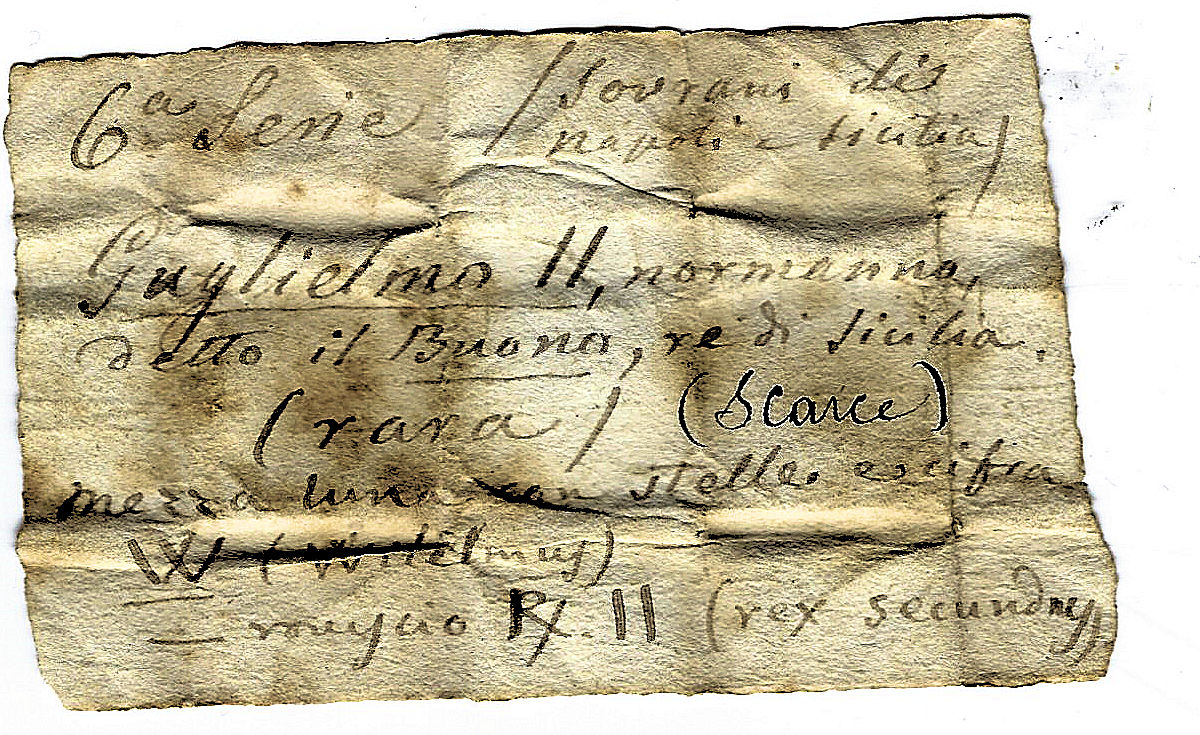 6ª Serie (Sovrani di
napoli e sicilia)
Guglielmo II, normanno,
detto il Buono, re di Sicilia.
(rara) (Scarce)
mezza luna con stelle. e cifra
W (Wilielmus)
— rovescio Rx. II (rex secundus)